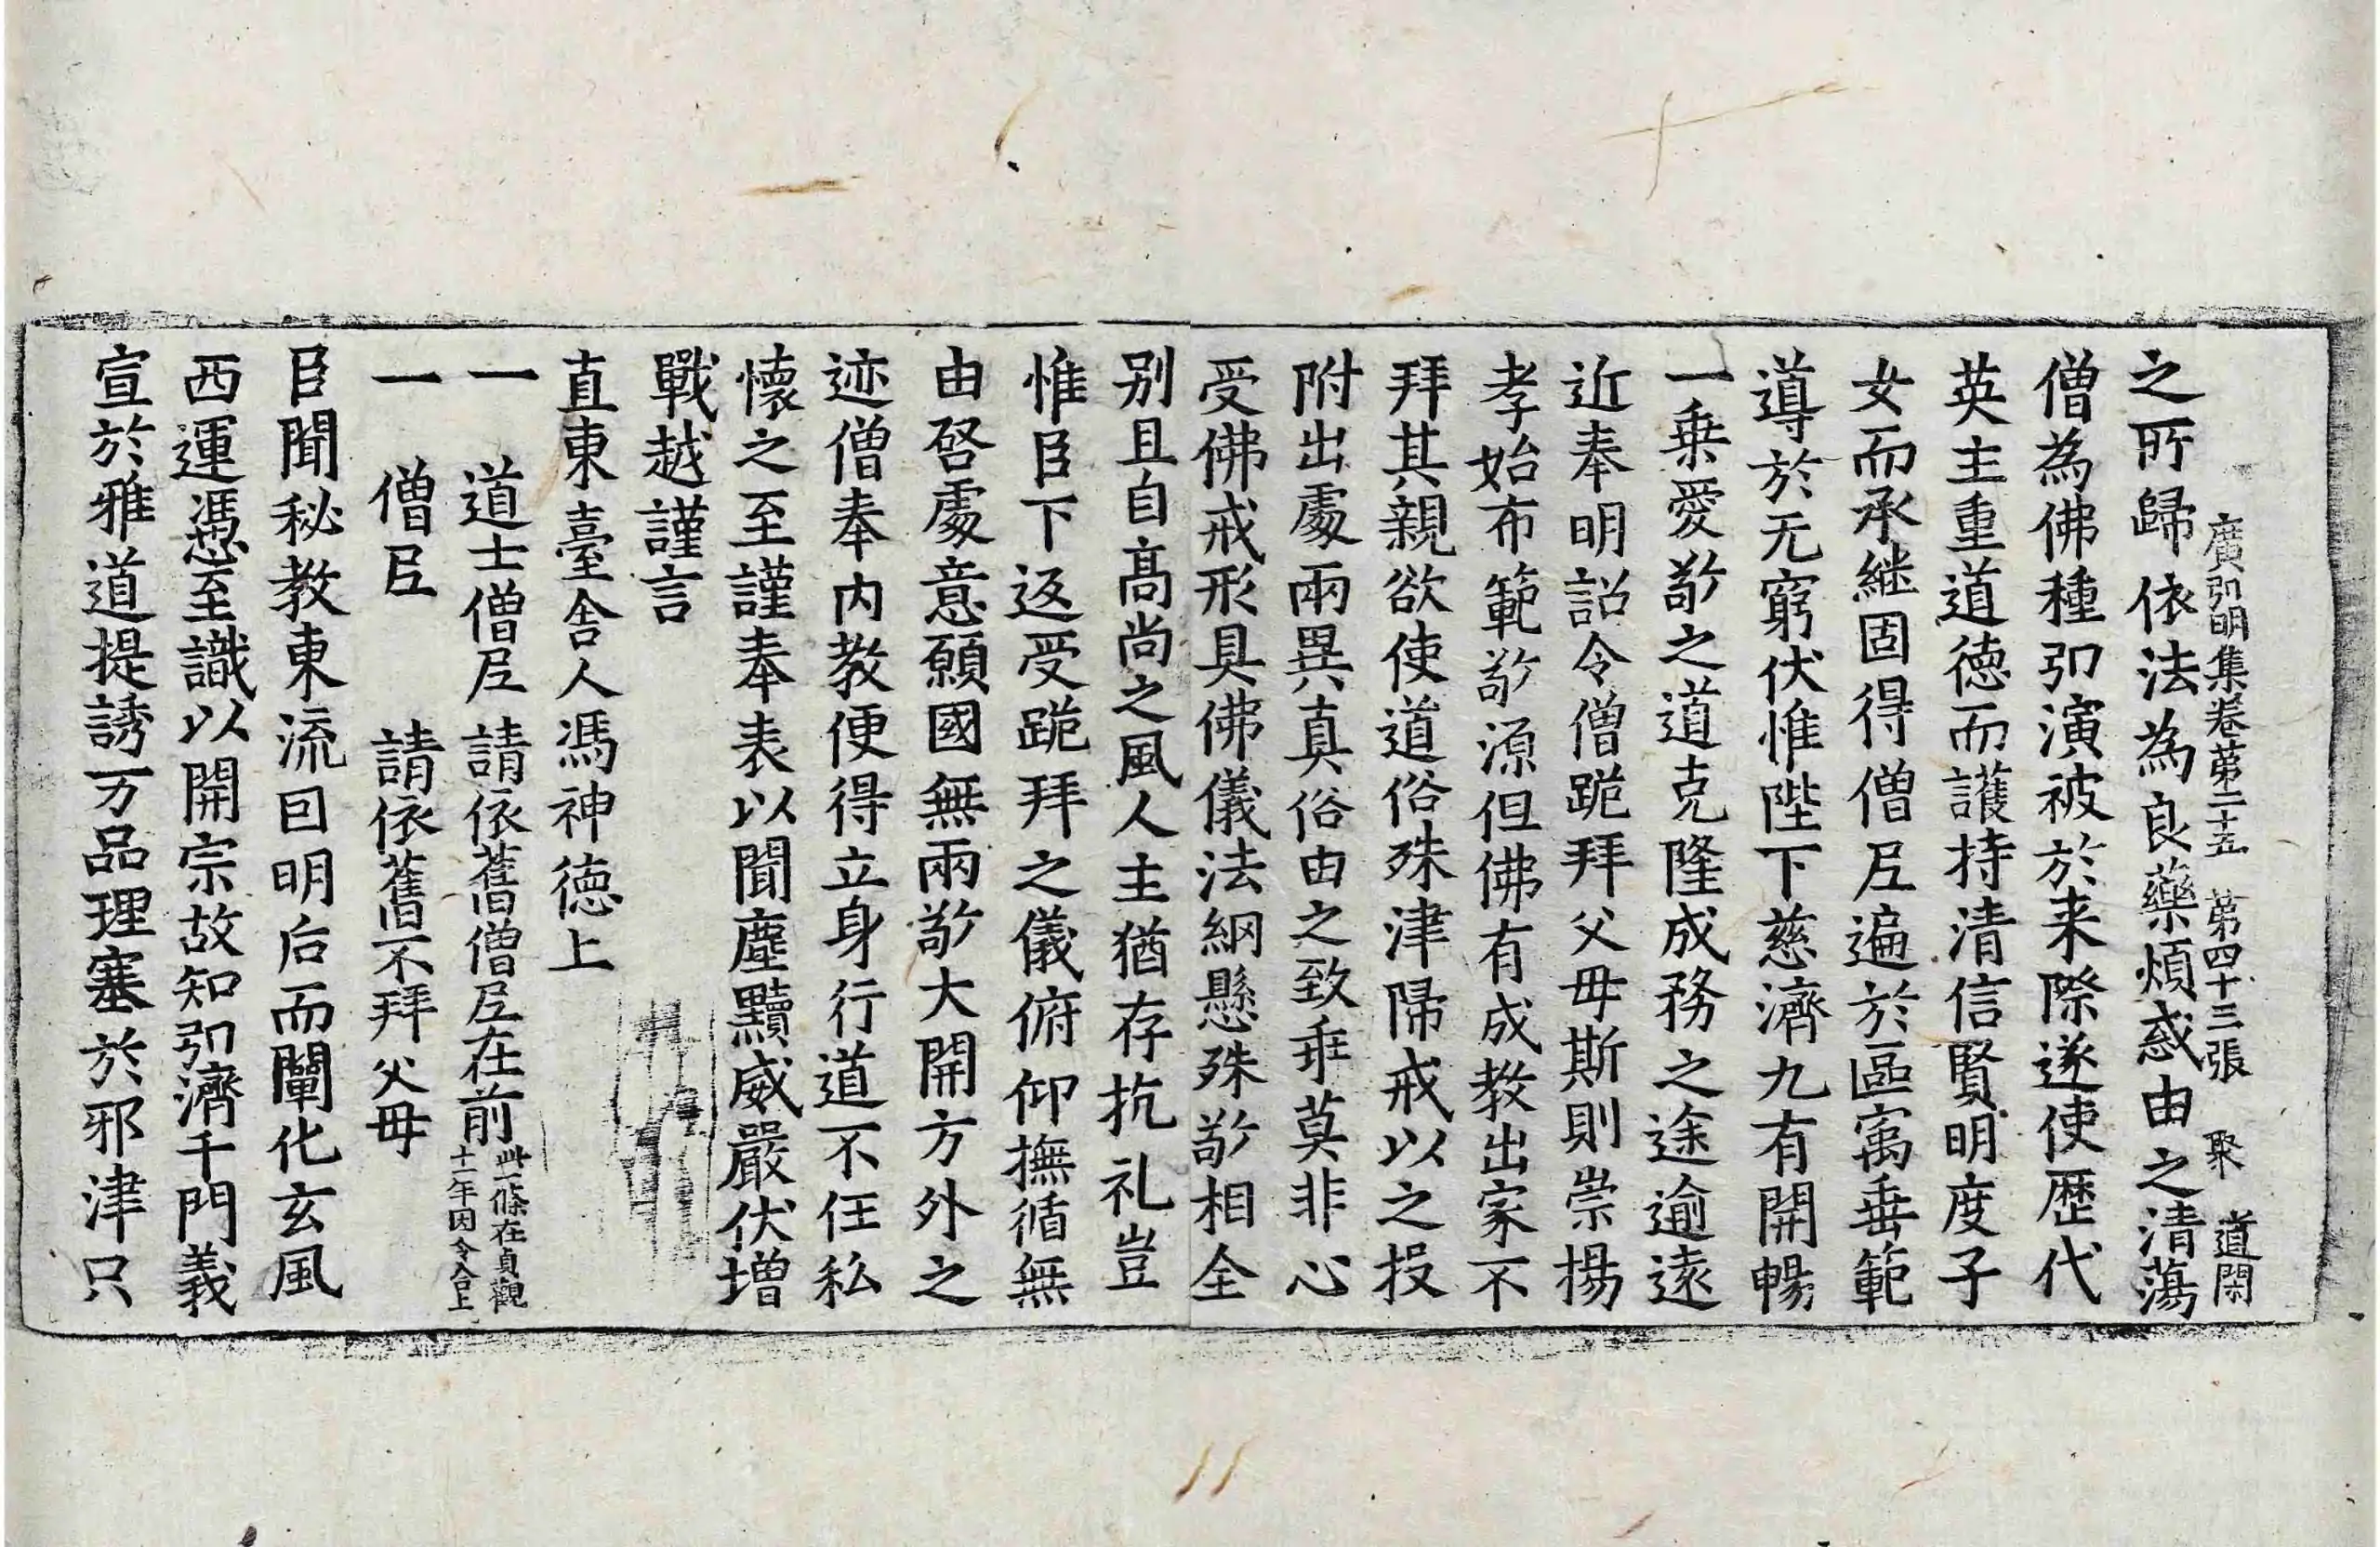 廣弘明集卷苐二十五　苐四十三張　聚　道閑
之所歸依法為良藥煩惑由之清蕩
僧為佛種弘演被於来際遂使歷代
英主重道徳而護持清信賢明度子
女而承継固得僧尼遍於區寓垂範
導於无窮伏惟陛下慈濟九有開暢
一乗愛敬之道克隆成務之途逾遠
近奉明詔令僧跪拜父母斯則崇揚
孝始布範敬源但佛有成教出家不
拜其親欲使道俗殊津歸戒以之投
附出處兩異真俗由之致乖莫非心
受佛戒形具佛儀法網懸殊敬相全
别且自髙尚之風人主猶存抗礼豈
惟臣下返受跪拜之儀俯仰撫循無
由啓處意願國無兩敬大開方外之
迹僧奉内教便得立身行道不任私
懐之至謹奉表以聞塵黷威嚴伏增
戰越謹言
直東臺舍人馮神徳上
一　道士僧尼請依舊僧尼在前此一條在貞觀十一年因令合上
一　僧尼　請依舊不拜父母
臣聞秘教東流因明后而闡化玄風
西運憑至識以開宗故知弘濟千門義
宣於雅道提誘万品理塞於邪津只